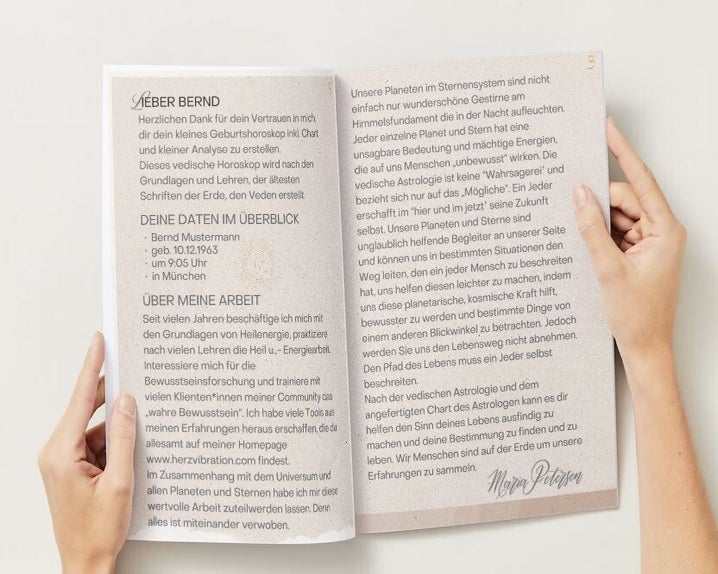 LIEBER BERND
Herzlichen Dank für dein Vertrauen in mich,
dir dein kleines Geburtshoroskop inkl. Chart
und kleiner Analyse zu erstellen.
Dieses vedische Horoskop wird nach den
Grundlagen und Lehren, der ältesten
Schriften der Erde, den Veden erstellt.
DEINE DATEN IM ÜBERBLICK
· Bernd Mustermann
· geb. 10.12.1963
· um 9:05 Uhr
· in München
ÜBER MEINE ARBEIT
Seit vielen Jahren beschäftige ich mich mit
den Grundlagen von Heilenergie, praktiziere
nach vielen Lehren die Heil u.,- Energiearbeit.
Interessiere mich für die
Bewusstseinsforschung und trainiere mit
vielen Klienten*innen meiner Community das
„wahre Bewusstsein“. Ich habe viele Tools aus
meinen Erfahrungen heraus erschaffen, die du
allesamt auf meiner Homepage
www.herzvibration.com findest.
Im Zusammenhang mit dem Universum und
allen Planeten und Sternen habe ich mir diese
wertvolle Arbeit zuteilwerden lassen. Denn
alles ist miteinander verwoben.
3
Unsere Planeten im Sternensystem sind nicht
einfach nur wunderschöne Gestirne am
Himmelsfundament die in der Nacht aufleuchten.
Jeder einzelne Planet und Stern hat eine
unsagbare Bedeutung und mächtige Energien,
die auf uns Menschen „unbewusst“ wirken. Die
vedische Astrologie ist keine "Wahrsagerei" und
bezieht sich nur auf das „Mögliche“. Ein Jeder
erschafft im "hier und im jetzt" seine Zukunft
selbst. Unsere Planeten und Sterne sind
unglaublich helfende Begleiter an unserer Seite
und können uns in bestimmten Situationen den
Weg leiten, den ein jeder Mensch zu beschreiten
hat, uns helfen diesen leichter zu machen, indem
uns diese planetarische, kosmische Kraft hilft,
bewusster zu werden und bestimmte Dinge von
einem anderen Blickwinkel zu betrachten. Jedoch
werden Sie uns den Lebensweg nicht abnehmen.
Den Pfad des Lebens muss ein Jeder selbst
beschreiten.
Nach der vedischen Astrologie und dem
angefertigten Chart des Astrologen kann es dir
helfen den Sinn deines Lebens ausfindig zu
machen und deine Bestimmung zu finden und zu
leben. Wir Menschen sind auf der Erde um unsere
Erfahrungen zu sammeln.
Maria Petersen